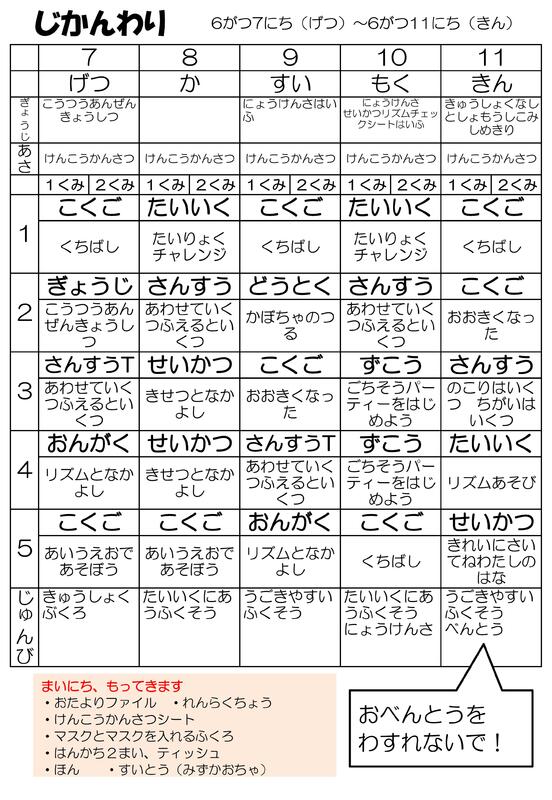 じかんわり 6がつ7にち（げつ）～6がつ11にち（きん）
7 8 9 10 11
げつ か すい もく きん
ぎょうじ
こうつうあんぜん
きょうしつ
にょうけんさはい
ふ
にょうけんさ
せいかつリズムチェッ
クシートはいふ
きゅうしょくなし
としょもうしこみ
しめきり
あさ
けんこうかんさつ けんこうかんさつ けんこうかんさつ けんこうかんさつ けんこうかんさつ
1くみ 2くみ 1くみ 2くみ 1くみ 2くみ 1くみ 2くみ 1くみ 2くみ
1
こくご たいいく こくご たいいく こくご
くちばし
たいりょく
チャレンジ
くちばし
たいりょく
チャレンジ
くちばし
2
ぎょうじ さんすう どうとく さんすう こくご
こうつうあん
ぜんきょうし
つ
あわせていく
つふえるとい
くつ
かぼちゃのつ
る
あわせていく
つふえるとい
くつ
おおきくなっ
た
3
さんすうT せいかつ こくご ずこう さんすう
あわせていく
つふえるとい
くつ
きせつとなか
よし
おおきくなっ
た
ごちそうパー
ティーをはじ
めよう
のこりはいく
つ　ちがいは
いくつ
4
おんがく せいかつ さんすうT ずこう たいいく
リズムとなか
よし
きせつとなか
よし
あわせていく
つふえるとい
くつ
ごちそうパー
ティーをはじ
めよう
リズムあそび
5
こくご こくご おんがく こくご せいかつ
あいうえおで
あそぼう
あいうえおで
あそぼう
リズムとなか
よし
くちばし
きれいにさい
てねわたしの
はな
じゅんび
きゅうしょく
ぶくろ
たいいくにあ
うふくそう
うごきやすい
ふくそう
たいいくにあ
うふくそう
にょうけんさ
うごきやすい
ふくそう
べんとう
まいにち、もってきます
・おたよりファイル　・れんらくちょう
・けんこうかんさつシート
・マスクとマスクを入れるふくろ
・はんかち2まい、ティッシュ
・ほん　　・すいとう（みずかおちゃ）
おべんとうを
わすれないで！